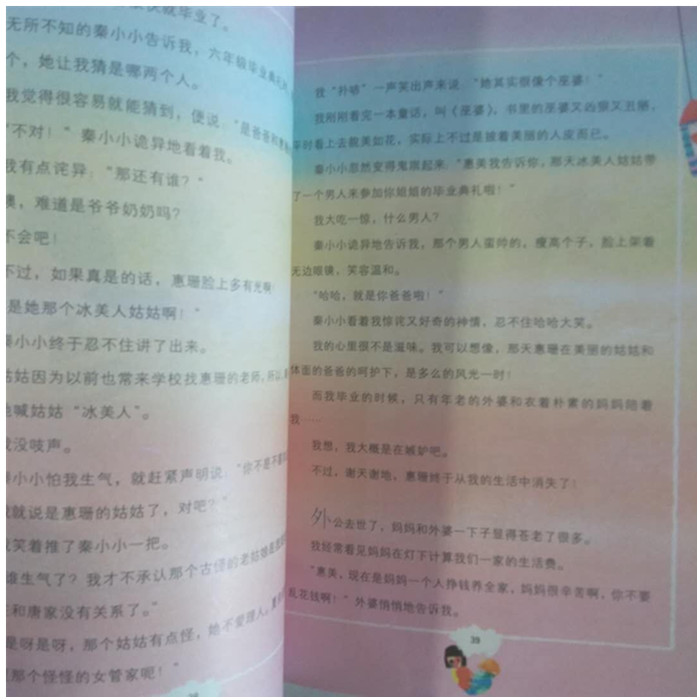 就毕业了。
无所不知的秦小小告诉我，六年级毕业典礼
个，她让我猜是哪两个人。
我觉得很容易就能猜到，便说：“是爸爸和
“不对！”秦小小诡异地看着我。
我有点诧异：“那还有谁？”
噢，难道是爷爷奶奶吗？
不会吧！
不过，如果真是的话，惠珊脸上多有光啊！
是她那个冰美人姑姑啊！”
秦小小终于忍不住讲了出来。
姑姑因为以前也常来学校找惠珊的老师，所以
她喊姑姑“冰美人”。
我没吱声。
秦小小怕我生气，就赶紧声明说：“你不是不
我就说是惠珊的姑姑了，对吧？”
我笑着推了秦小小一把。
谁生气了？我才不承认那个古怪的老姑娘是
和唐家没有关系了。”
是呀是呀，那个姑姑有点怪，她不爱理人，
那个怪怪的女管家呢！”
38
我“扑哧”一声笑出声来说：“她其实很像个巫婆！”
我刚刚看完一本童话，叫《巫婆》，书里的巫婆又凶狠又丑陋，
平时看上去貌美如花，实际上不过是披着美丽的人皮而已。
秦小小忽然变得鬼祟起来：“惠美我告诉你，那天冰美人姑姑带
了一个男人来参加你姐姐的毕业典礼啦！”
我大吃一惊，什么男人？
秦小小诡异地告诉我，那个男人蛮帅的，瘦高个子，脸上架着
无边眼镜，笑容温和。
“哈哈，就是你爸爸啦！”
秦小小看着我惊诧又好奇的神情，忍不住哈哈大笑。
我的心里很不是滋味。我可以想像，那天惠珊在美丽的姑姑和
体面的爸爸的呵护下，是多么的风光一时！
而我毕业的时候，只有年老的外婆和衣着朴素的妈妈陪着
我……
我想，我大概是在嫉妒吧。
不过，谢天谢地，惠珊终于从我的生活中消失了！
外公去世了，妈妈和外婆一下子显得苍老了很多。
我经常看见妈妈在灯下计算我们一家的生活费。
“惠美，现在是妈妈一个人挣钱养全家，妈妈很辛苦啊，你不要
乱花钱啊！”外婆悄悄地告诉我。
39